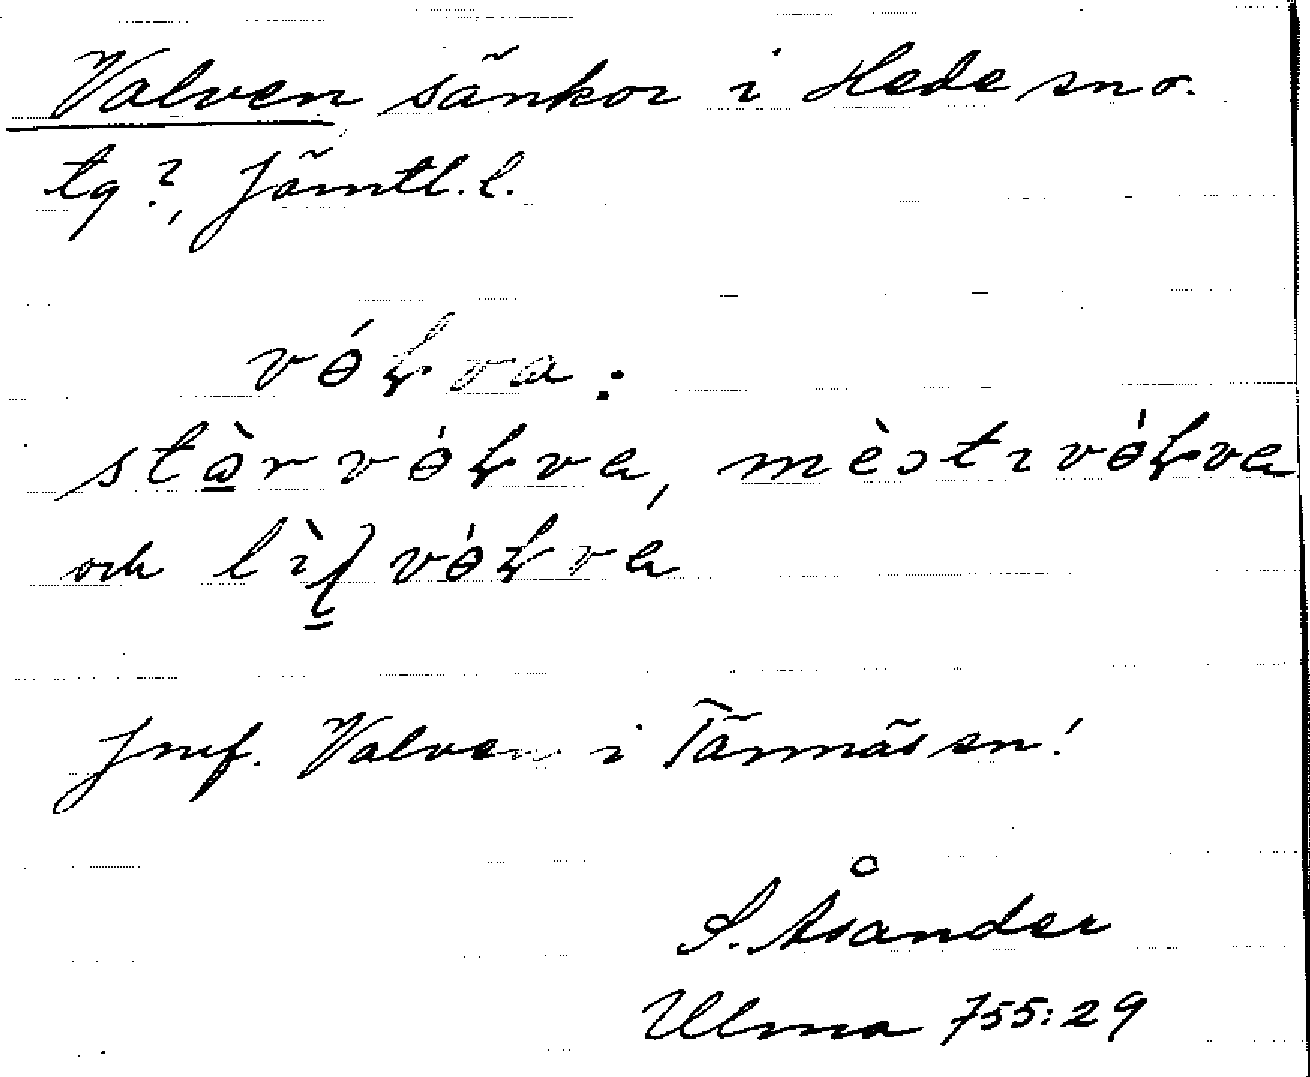 Valven sänkor i Hede sn o.
tg?, Jämtl. l.
vɵ́ƚva:
stɑ̀rvɵ́ƚva, mèstɩvɵ́ƚva
och lìʃvɵ́ƚva
Jmf. Valven i Tännäs sn!
S. Åsander
Ulma 755:29